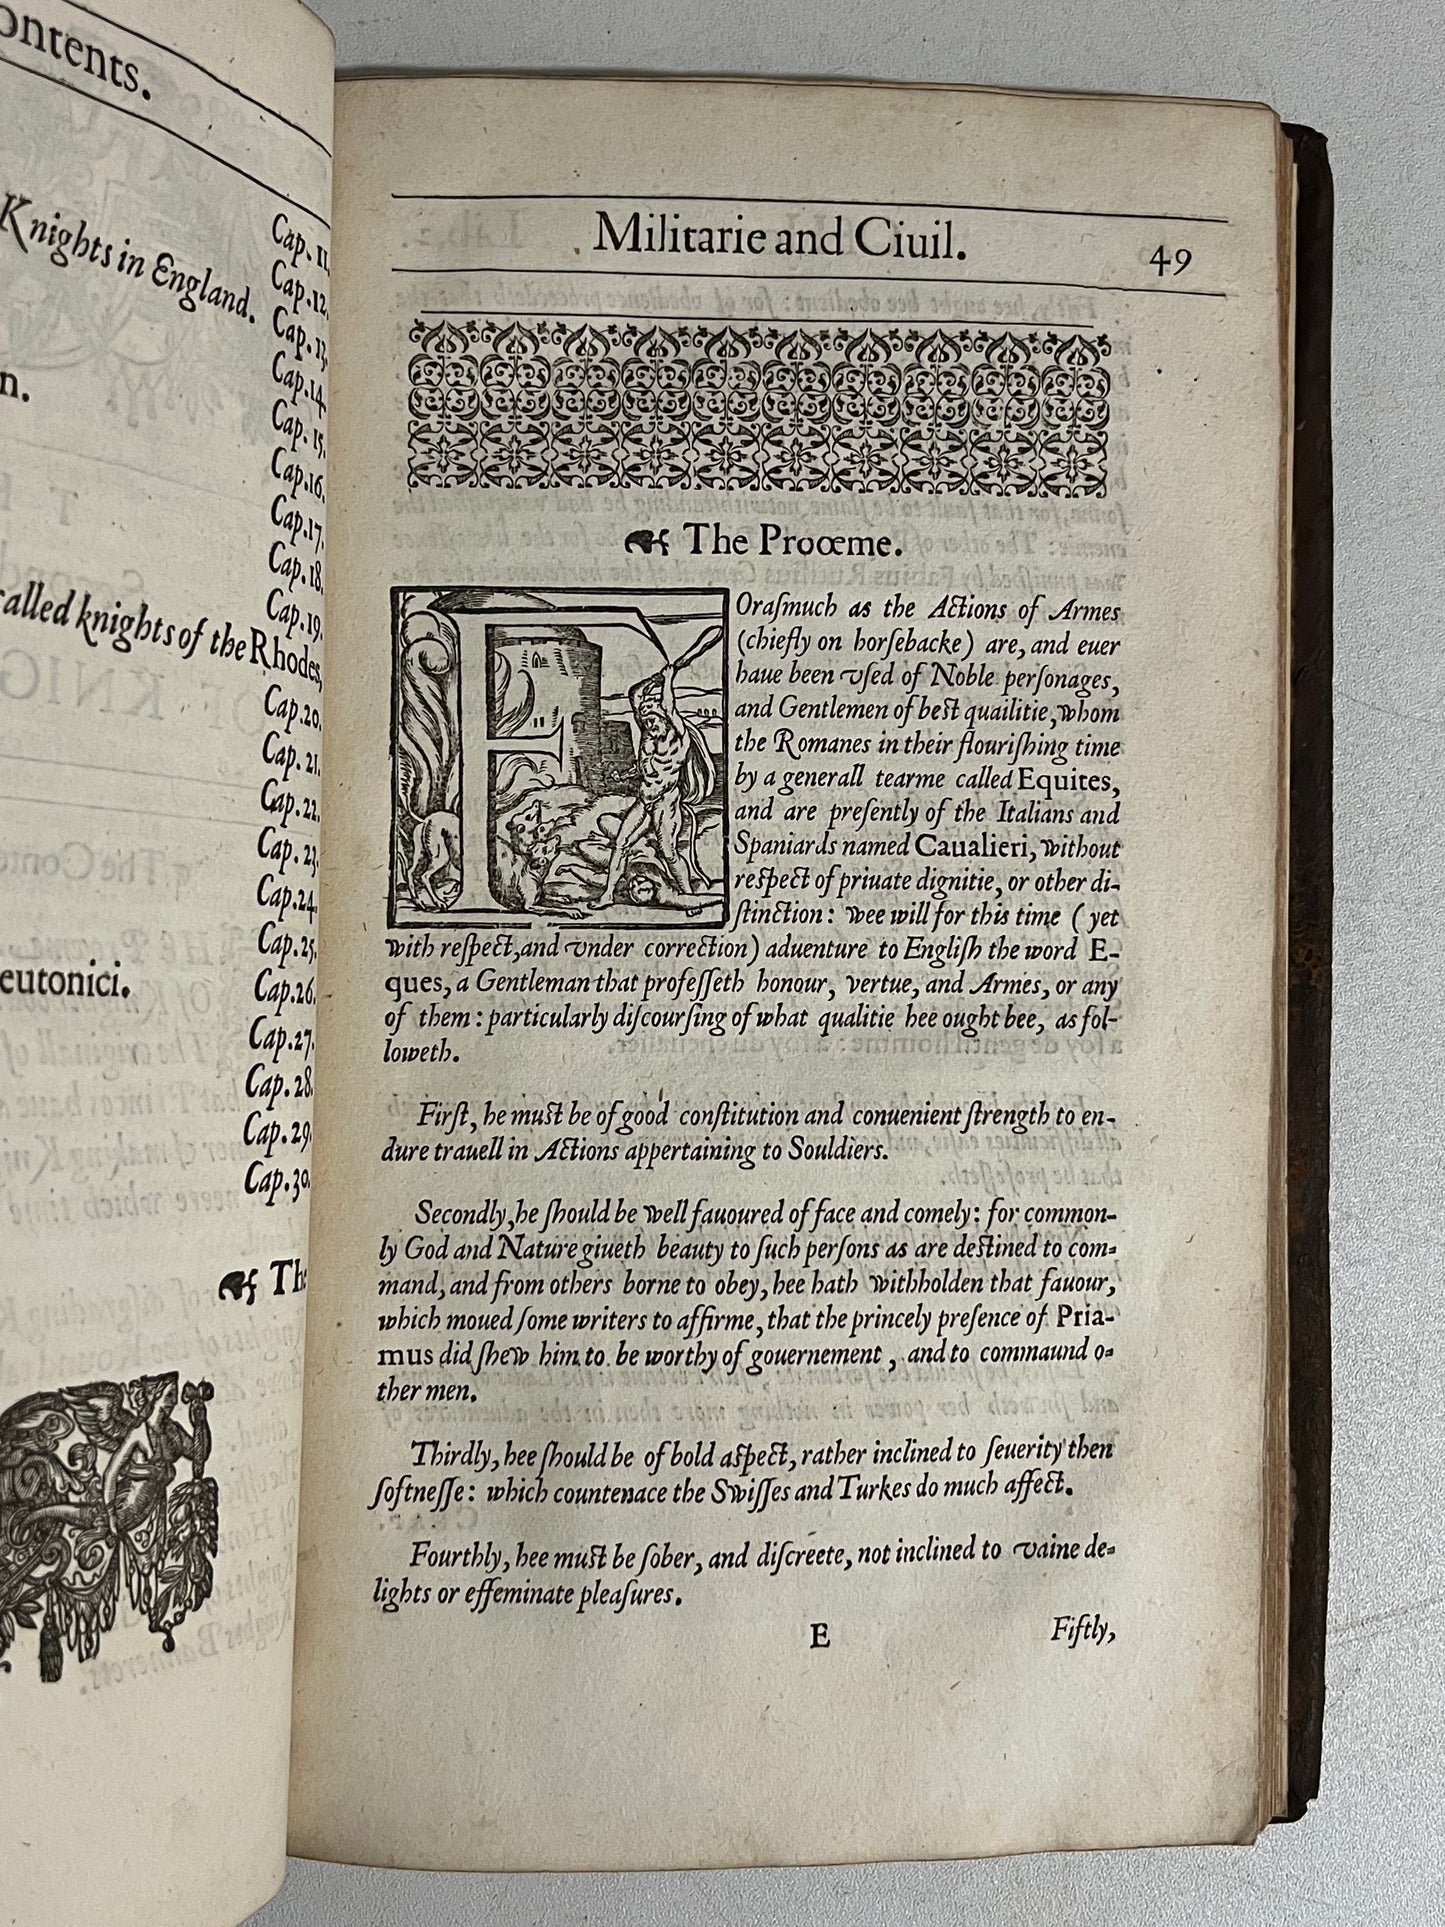 ontents.
Knights in England.
n.
called knights of the Rhodes,
eutonici.
Cap. 11.
Cap. 12.
Cap. 13.
Cap. 14.
Cap. 15.
Cap. 16.
Cap. 17.
Cap. 18.
Cap. 19.
Cap. 20.
Cap. 21.
Cap. 22.
Cap. 23.
Cap. 24.
Cap. 25.
Cap. 26.
Cap. 27.
Cap. 28.
Cap. 29.
Cap. 30.
The
Militarie and Ciuil.
49
The Proœme.
FOraſmuch as the Actions of Armes
(chiefly on horſebacke) are, and euer
haue been vſed of Noble perſonages,
and Gentlemen of beſt quailitie, whom
the Romanes in their flouriſhing time
by a generall tearme called Equites,
and are preſently of the Italians and
Spaniards named Caualieri, without
reſpect of priuate dignitie, or other di-
ſtinction: wee will for this time (yet
with reſpect, and vnder correction) aduenture to Engliſh the word E-
ques, a Gentleman that profeſſeth honour, vertue, and Armes, or any
of them: particularly diſcourſing of what qualitie hee ought bee, as fol-
loweth.
Firſt, he muſt be of good conſtitution and conuenient ſtrength to en-
dure trauell in Actions appertaining to Souldiers.
Secondly, he ſhould be well fauoured of face and comely: for common-
ly God and Nature giueth beauty to ſuch perſons as are deſtined to com-
mand, and from others borne to obey, hee hath withholden that fauour,
which moued ſome writers to affirme, that the princely preſence of Pria-
mus did ſhew him to be worthy of gouernement, and to commaund o-
ther men.
Thirdly, hee ſhould be of bold aſpect, rather inclined to ſeuerity then
ſoftneſſe: which countenace the Swiſſes and Turkes do much affect.
Fourthly, hee muſt be ſober, and diſcreete, not inclined to vaine de-
lights or effeminate pleaſures.
E
Fiftly,